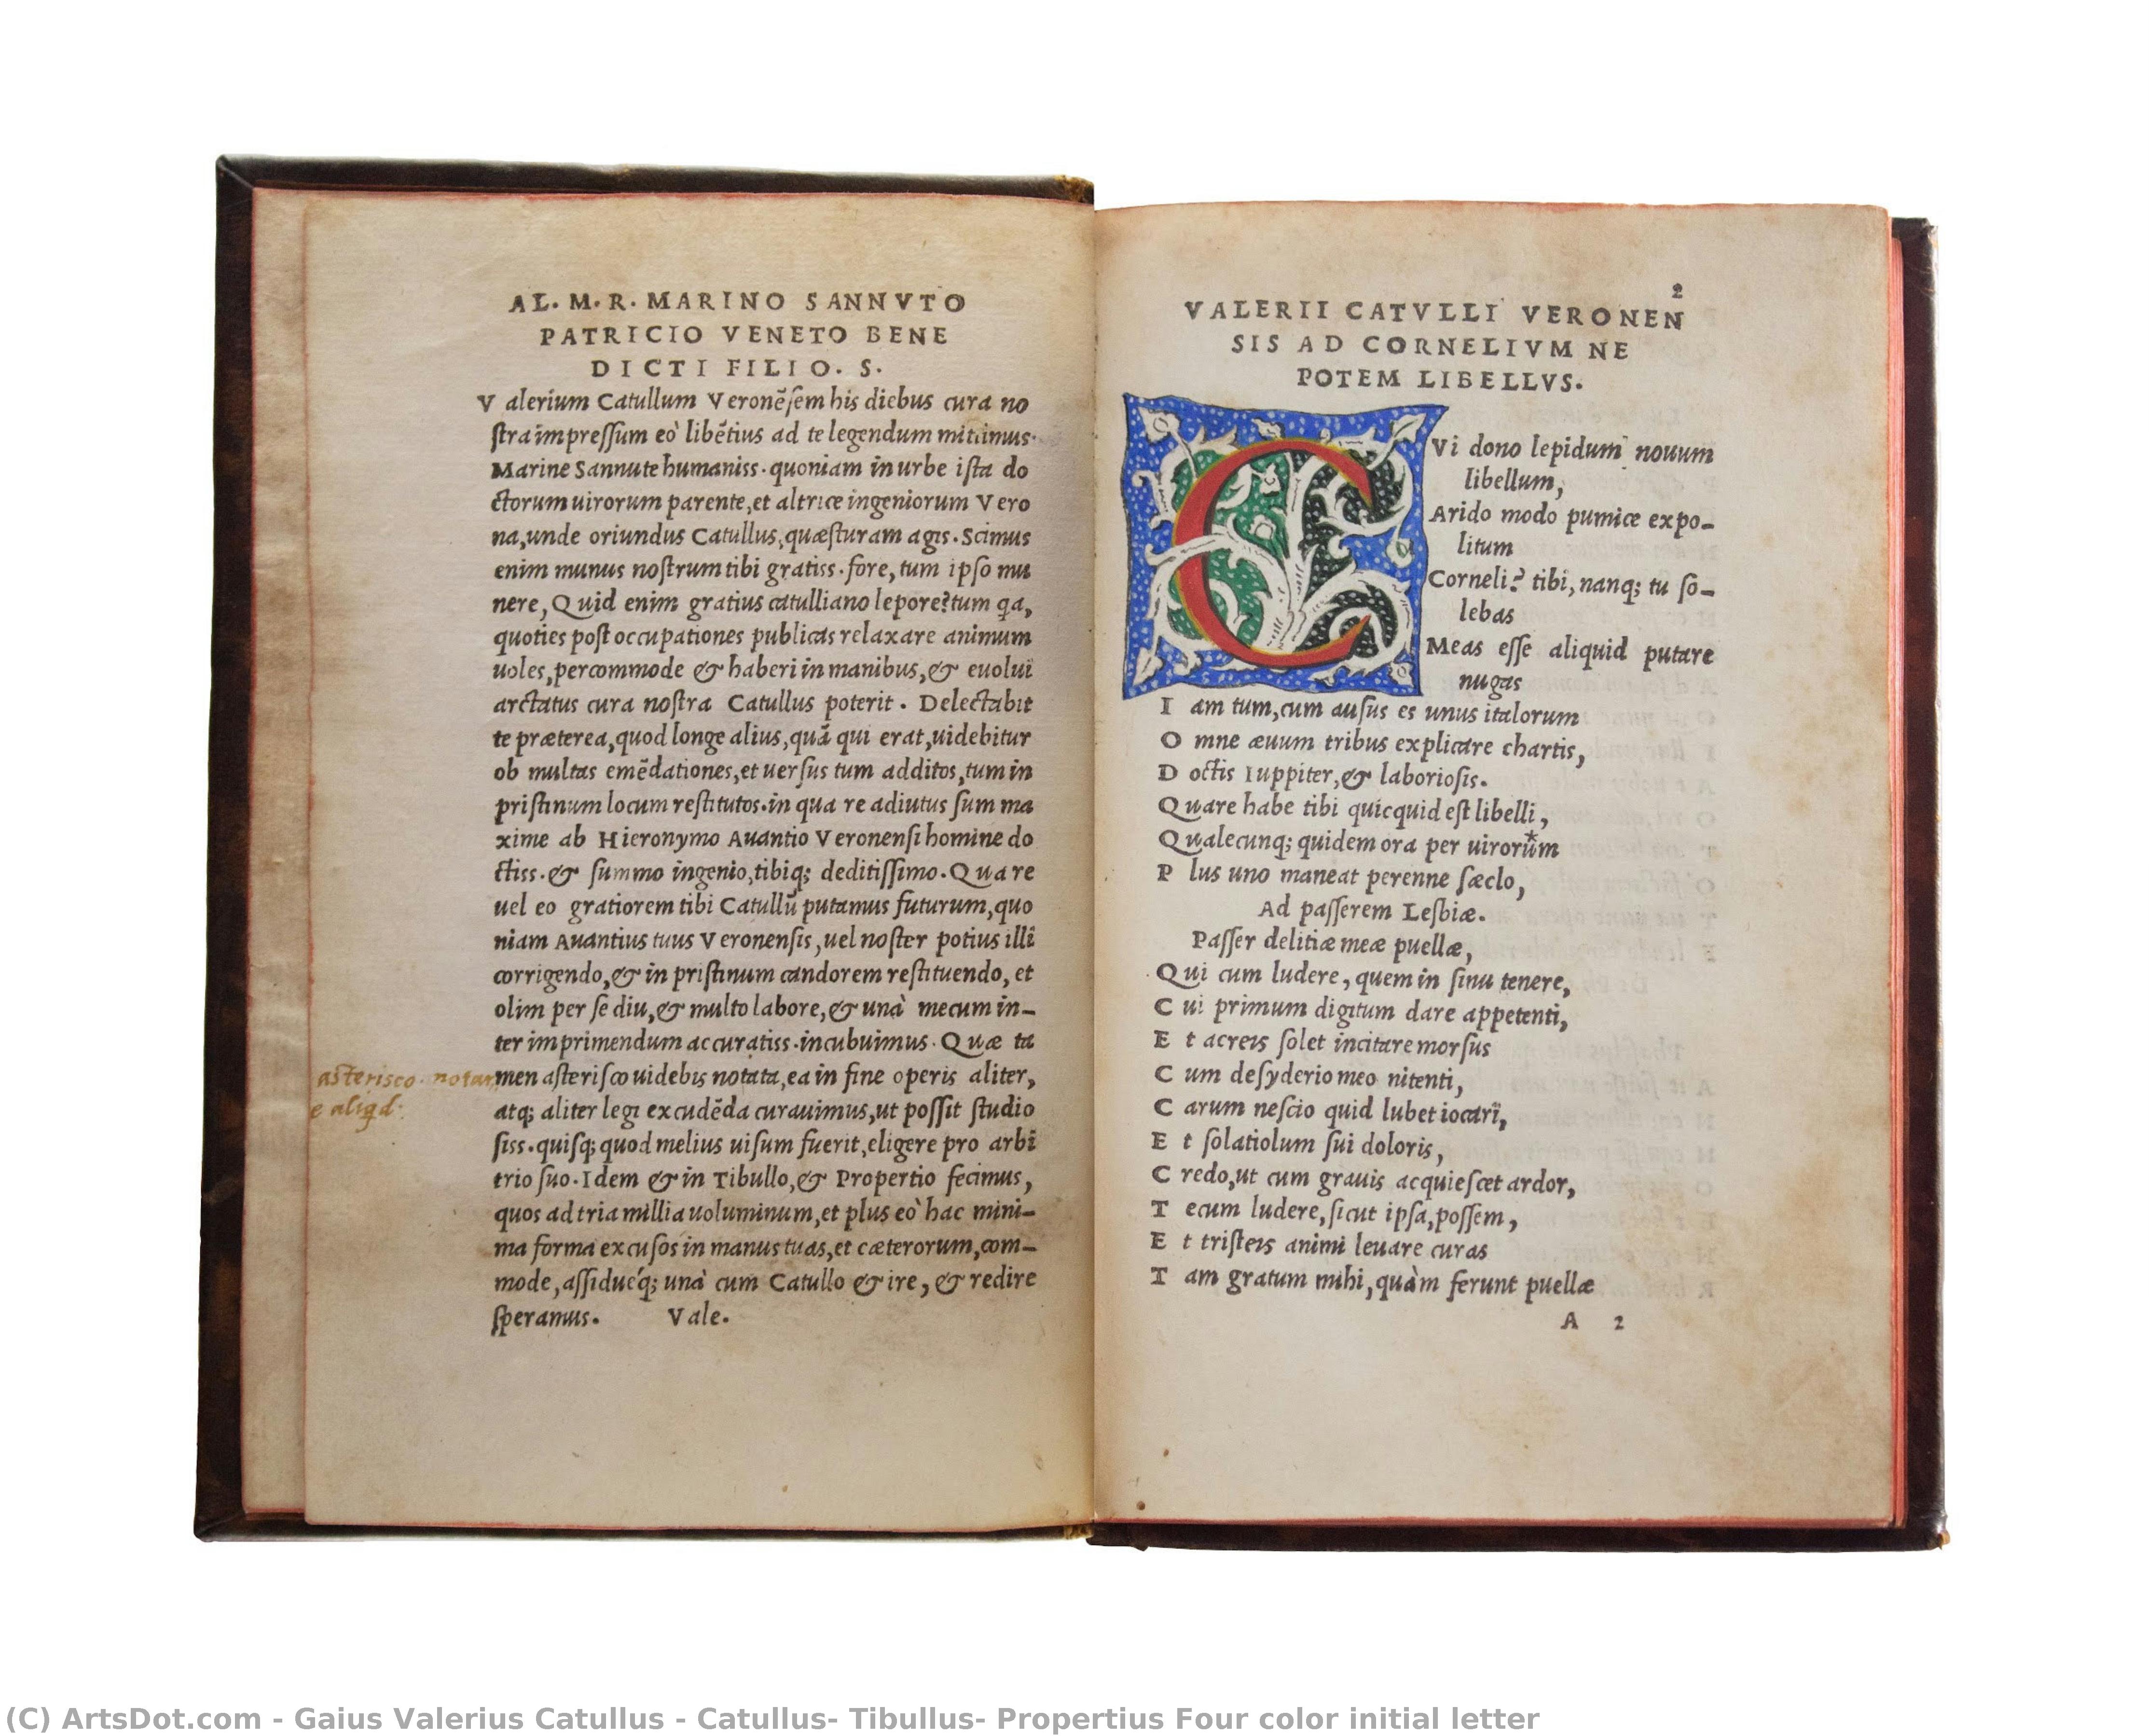 AL. M. R. MARINO SANNVTO
PATRICIO VENETO BENE
DICTI FILIO. S.
V alerium Catullum Veronẽſem his diebus cura no
ſtra impreſſum eò libẽtius ad te legendum mittimus.
Marine Sannute humaniss. quoniam in urbe iſta do
ctorum uirorum parente, et altrice ingeniorum Vero
na, unde oriundus Catullus, quæſturam agis. Scimus
enim munus noſtrum tibi gratiss. fore, tum ipſo mu
nere, Quid enim gratius catulliano lepore? tum qa,
quoties poſt occupationes publicas relaxare animum
uoles, percommode & haberi in manibus, & euolui
arctatus cura noſtra Catullus poterit. Delectabit
te præterea, quod longe alius, quã qui erat, uidebitur
ob multas emẽdationes, et uerſus tum additos, tum in
priſtinum locum reſtitutos. in qua re adiutus ſum ma
xime ab Hieronymo Auantio Veronenſi homine do
ctiss. & ſummo ingenio, tibiq; deditiſſimo. Quare
uel eo gratiorem tibi Catullũ putamus futurum, quo
niam Auantius tuus Veronenſis, uel noſter potius illi
corrigendo, & in priſtinum candorem reſtituendo, et
olim per ſe diu, & multo labore, & unà mecum in-
ter imprimendum accuratiss. incubuimus. Quæ ta
asterisco. notan
men aſteriſco uidebis notata, ea in fine operis aliter,
e aliqd.
atq; aliter legi excudẽda curauimus, ut poſſit ſtudio
ſiss. quiſq; quod melius uiſum fuerit, eligere pro arbi
trio ſuo. Idem & in Tibullo, & Propertio fecimus,
quos ad tria millia uoluminum, et plus eò hac mini-
ma forma excuſos in manus tuas, et cæterorum, com-
mode, aſſidueq́; unà cum Catullo & ire, & redire
ſperamus. Vale.
2
VALERII CATVLLI VERONEN
SIS AD CORNELIVM NE
POTEM LIBELLVS.
C Vi dono lepidum nouum
libellum,
Arido modo pumice expo-
litum
Corneli? tibi, nanq; tu ſo-
lebas
Meas eſſe aliquid putare
nugas
I am tum, cum auſus es unus italorum
O mne æuum tribus explicare chartis,
D octis Iuppiter, & laborioſis.
Q uare habe tibi quicquid eſt libelli,
Q ualecunq; quidem ora per uirorum*
P lus uno maneat perenne ſæclo,
Ad paſſerem Leſbiæ.
Paſſer delitiæ meæ puellæ,
Q ui cum ludere, quem in ſinu tenere,
C ui primum digitum dare appetenti,
E t acreis ſolet incitare morſus
C um deſyderio meo nitenti,
C arum neſcio quid lubet iocari,
E t ſolatiolum ſui doloris,
C redo, ut cum grauis acquieſcet ardor,
T ecum ludere, ſicut ipſa, poſſem,
E t triſteis animi leuare curas
T am gratum mihi, quàm ferunt puellæ
A 2
(C) ArtsDot.com - Gaius Valerius Catullus - Catullus- Tibullus- Propertius Four color initial letter